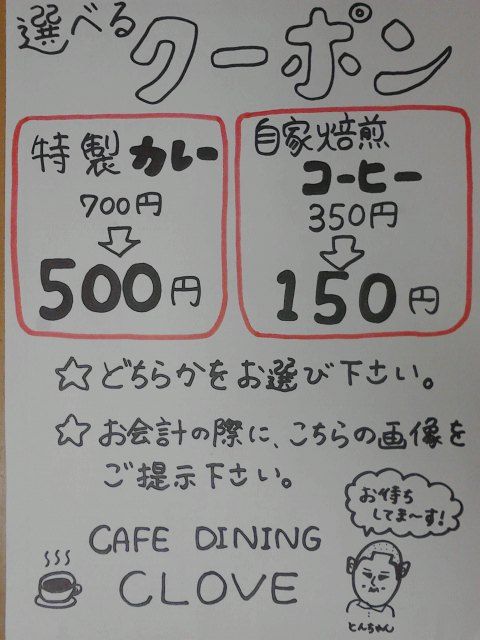 選べる
クーポン
特製カレー
700円
500円
自家焙煎
コーヒー
350円
150円
☆どちらかをお選び下さい。
☆お会計の際に、こちらの画像を
ご提示下さい。
お待ち
してま〜す!
CAFE DINING
CLOVE
とんちゃん